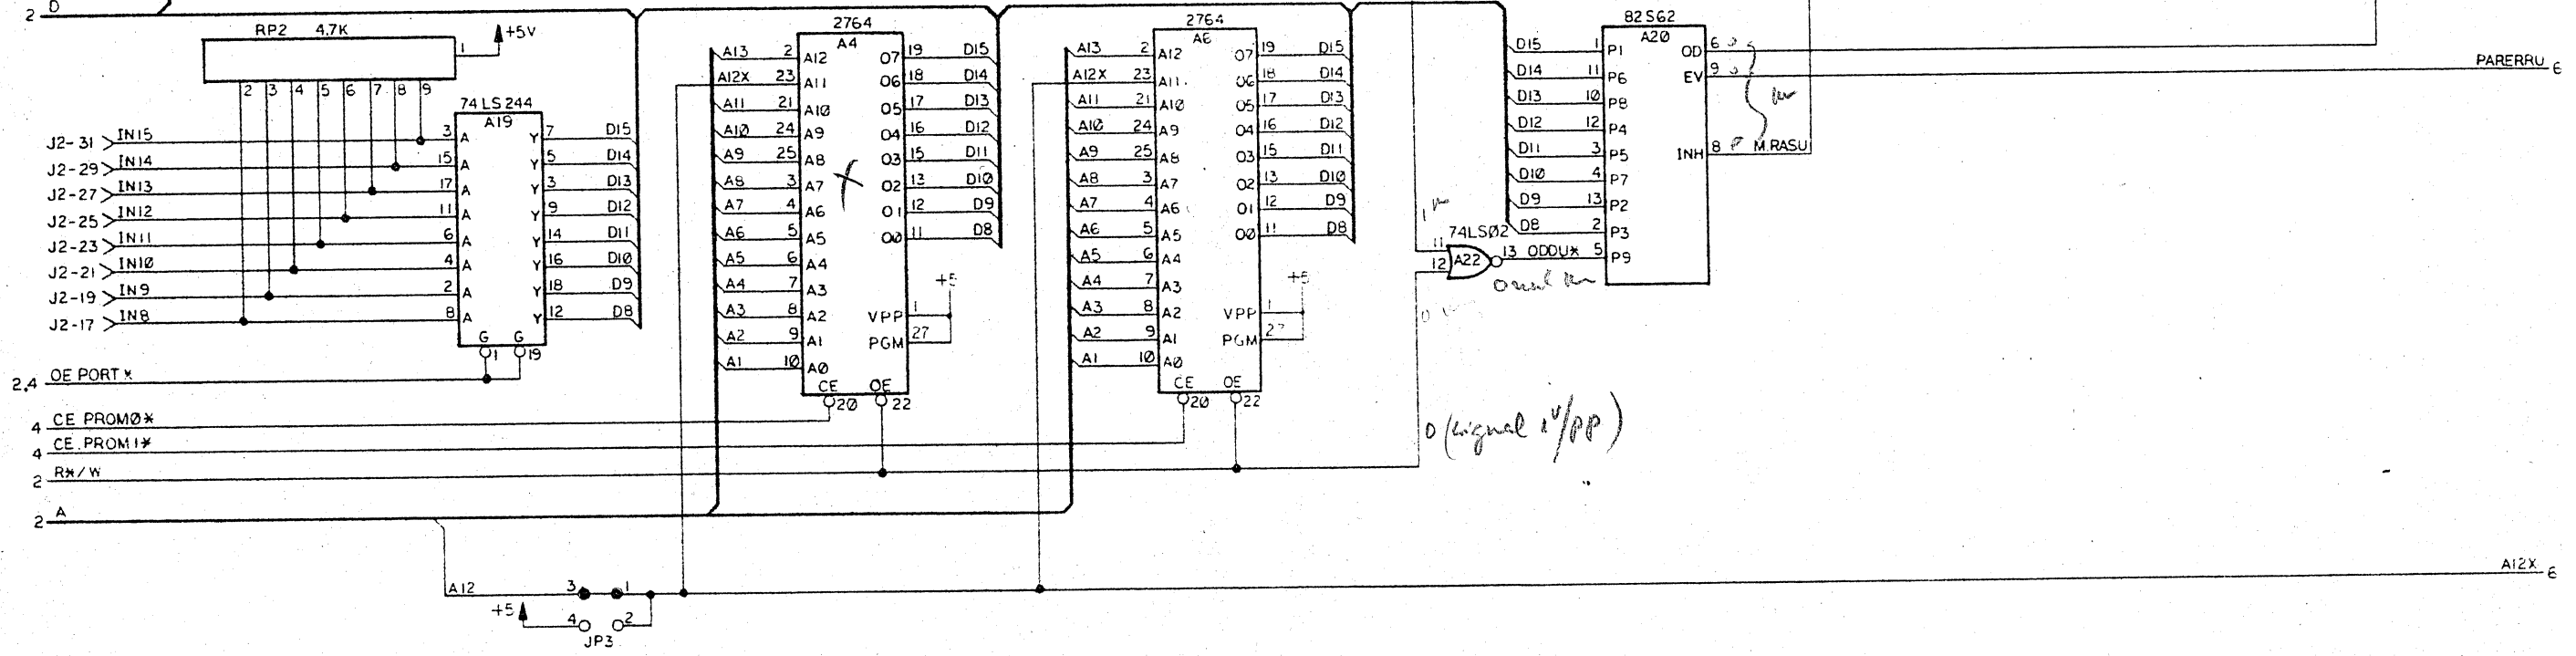 2 D
RP2 4.7K
1 +5V
2 3 4 5 6 7 8 9
74LS244
A19
J2-31 IN15 3 A Y 7 D15
J2-29 IN14 15 A Y 5 D14
J2-27 IN13 17 A Y 3 D13
J2-25 IN12 11 A Y 9 D12
J2-23 IN11 6 A Y 14 D11
J2-21 IN10 4 A Y 16 D10
J2-19 IN9 2 A Y 18 D9
J2-17 IN8 8 A Y 12 D8
G G
1 19
2,4 OE PORT*
4 CE PROM0*
4 CE.PROM1*
2 R*/W
2 A
2764
A4
A13 2 A12 O7 19 D15
A12X 23 A11 O6 18 D14
A11 21 A10 O5 17 D13
A10 24 A9 O4 16 D12
A9 25 A8 O3 15 D11
A8 3 A7 O2 13 D10
A7 4 A6 O1 12 D9
A6 5 A5 O0 11 D8
A5 6 A4
A4 7 A3 +5
A3 8 A2 VPP 1
A2 9 A1 PGM 27
A1 10 A0
CE OE
20 22
2764
A6
A13 2 A12 O7 19 D15
A12X 23 A11 O6 18 D14
A11 21 A10 O5 17 D13
A10 24 A9 O4 16 D12
A9 25 A8 O3 15 D11
A8 3 A7 O2 13 D10
A7 4 A6 O1 12 D9
A6 5 A5 O0 11 D8
A5 6 A4
A4 7 A3 +5
A3 8 A2 VPP 1
A2 9 A1 PGM 27
A1 10 A0
CE OE
20 22
82S62
A20
D15 1 P1 OD 6
D14 11 P6 EV 9 PARERRU 6
D13 10 P8
D12 12 P4
D11 3 P5 INH 8 M.RASU
D10 4 P7
D9 13 P2
D8 2 P3
74LS02
11 12 A22 13 ODDU* 5 P9
0 (signal 1V/pp)
A12 3 1
+5 4 2
JP3
A12X 6